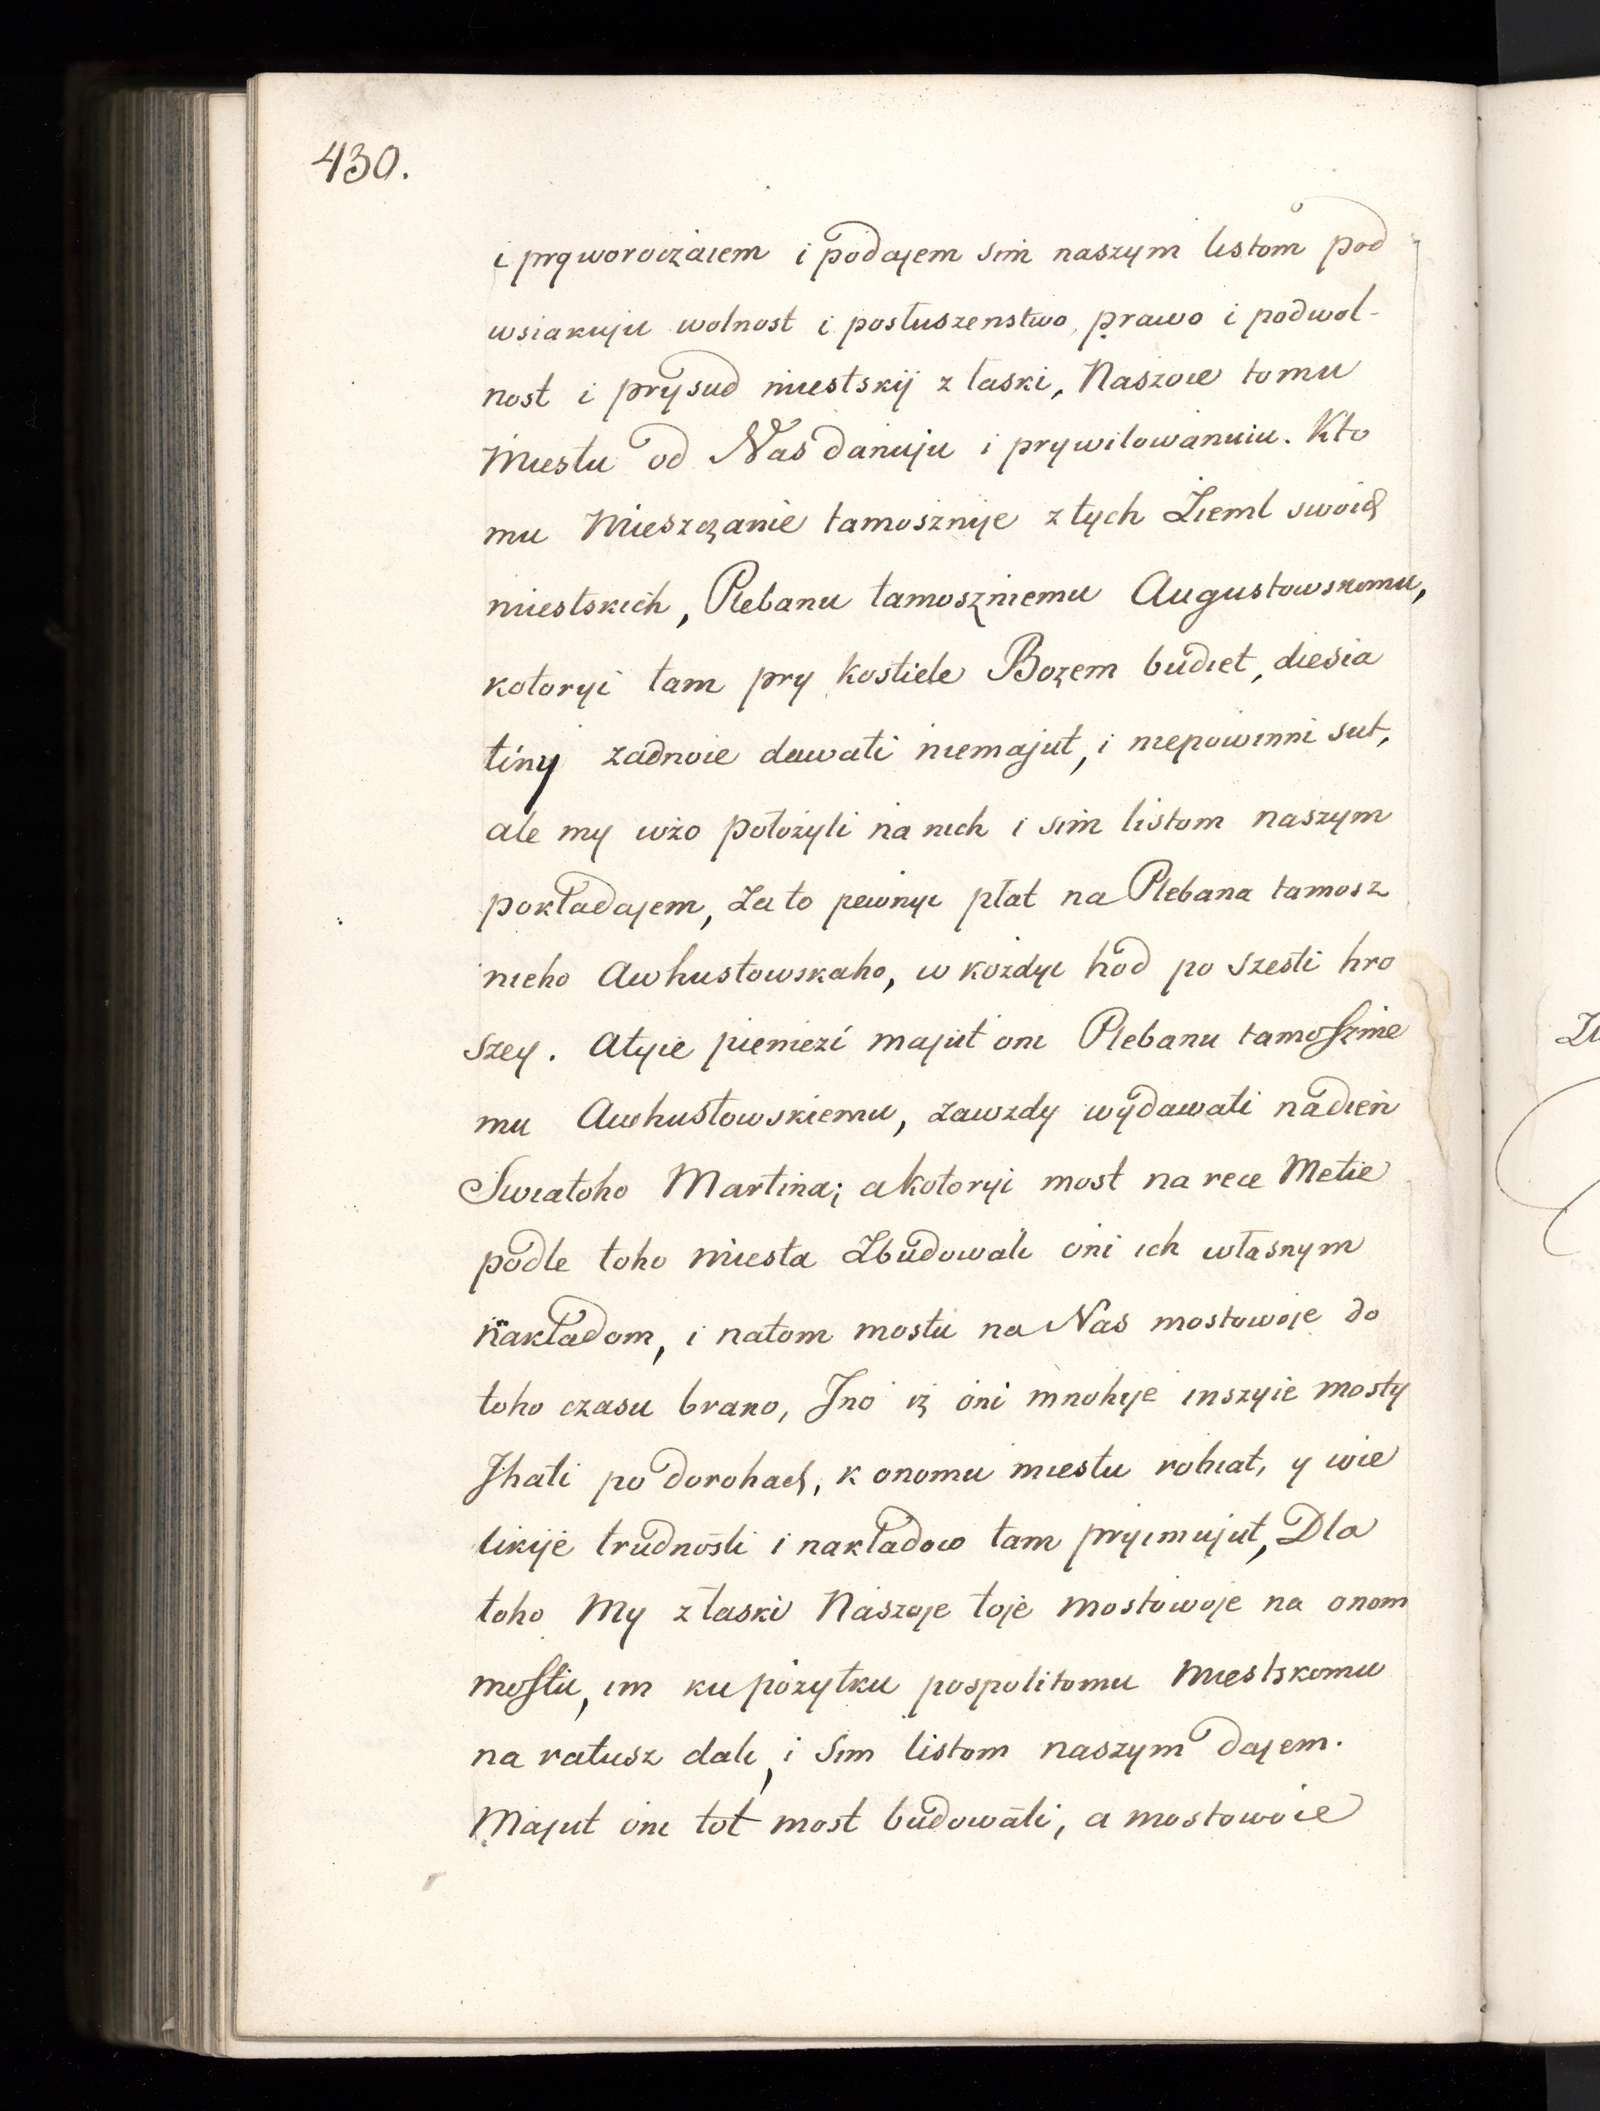 430.
i pryworoczaiem i podajem sim naszym listom pod
wsiakuju wolnost i posłuszenstwo, prawo i podwol-
nost i prysud miestskij z łaski, Naszoie tomu
Miestu od Nas danuju i prywilowanuiu. Kto
mu Mieszczanie tamosznije z tych Ziemł swoich
miestskich, Plebanu tamoszniemu Augustowskomu,
kotoryi tam pry kostiele Bozem budiet, diesia
tiny zadnoie dawati niemajut, i niepowinni sut,
ale my wżo położyli na nich i sim listom naszym
pokładajem, za to pewnyi płat na Plebana tamosz
nieho Awhustowskaho, w kożdyi hod po szesti hro
szey. Atyie pieniezi majut oni Plebanu tamosznie
mu Awhustowskiemu, zawzdy wydawati nadień
Swiatoho Martina; a kotoryi most na rece Metie
podle toho miesta zbudowali oni ich własnym
nakładom, i natom mostu na Nas mostowoje do
toho czasu brano, Jno iz oni mnohije inszyie mosty
Jhati po dorohach, k onomu miestu robiat, y wie
likije trudnosti i nakładow tam pryimujut, Dla
toho My z łaski Naszoje toje mostowoje na onom
mostu, im ku pożytku pospolitomu Miestskomu
na ratusz dali, i Sim listom naszym dajem.
Majut oni tot most budowati, a mostowoie